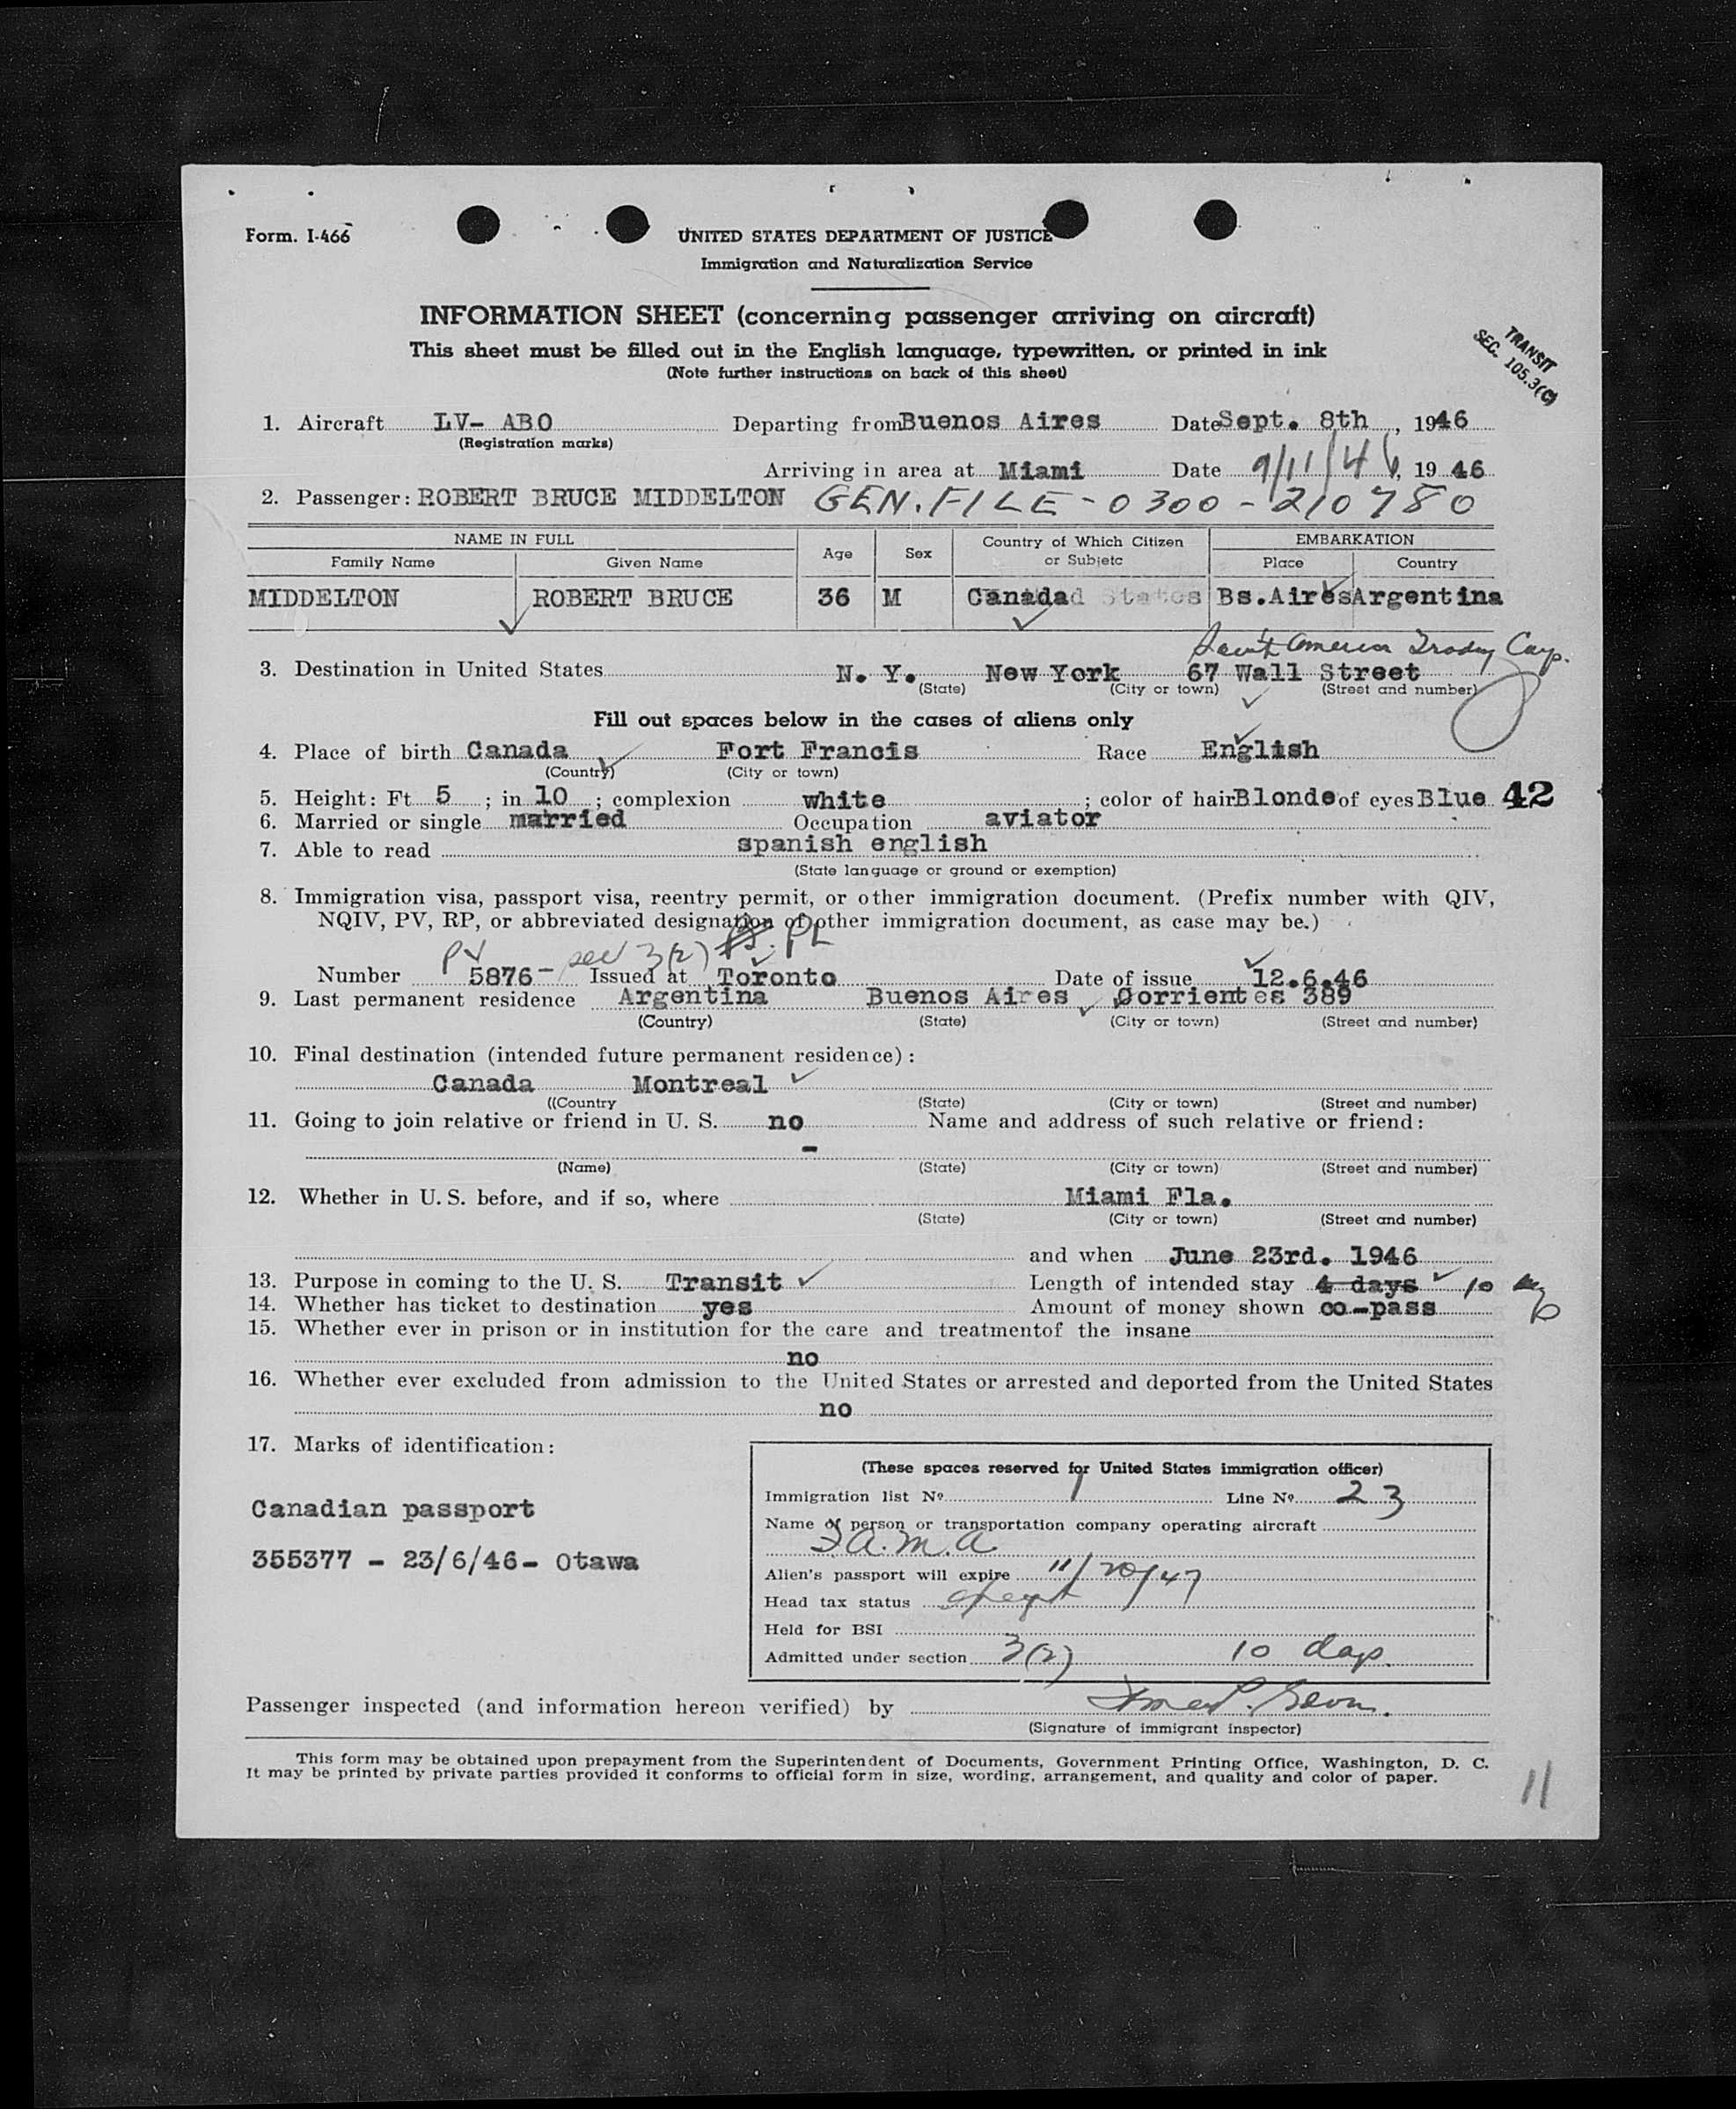 Form. I-466
UNITED STATES DEPARTMENT OF JUSTICE
Immigration and Naturalization Service
INFORMATION SHEET (concerning passenger arriving on aircraft)
This sheet must be filled out in the English language, typewritten, or printed in ink
(Note further instructions on back of this sheet)
TRANSIT
SEC. 105.3(C)
1. Aircraft LV- ABO Departing from Buenos Aires Date Sept. 8th , 1946
(Registration marks)
Arriving in area at Miami Date 9/11/46, 19 46
2. Passenger: ROBERT BRUCE MIDDELTON GEN. FILE - 0300 - 210780
NAME IN FULL Age Sex Country of Which Citizen or Subjetc EMBARKATION
Family Name Given Name Place Country
MIDDELTON ROBERT BRUCE 36 M Canada Bs.Aires Argentina
America Trading Corp.
3. Destination in United States N. Y. New York 67 Wall Street
(State) (City or town) (Street and number)
Fill out spaces below in the cases of aliens only
4. Place of birth Canada Fort Francis Race English
(Country) (City or town)
5. Height: Ft 5 ; in 10 ; complexion white ; color of hair Blonde of eyes Blue 42
6. Married or single married Occupation aviator
7. Able to read spanish english
(State language or ground or exemption)
8. Immigration visa, passport visa, reentry permit, or other immigration document. (Prefix number with QIV,
NQIV, PV, RP, or abbreviated designation of other immigration document, as case may be.)
PV sec 3(2) PL
Number 5876- Issued at Toronto Date of issue 12.6.46
9. Last permanent residence Argentina Buenos Aires Corrientes 389
(Country) (State) (City or town) (Street and number)
10. Final destination (intended future permanent residence):
Canada Montreal
((Country (State) (City or town) (Street and number)
11. Going to join relative or friend in U. S. no Name and address of such relative or friend:
-
(Name) (State) (City or town) (Street and number)
12. Whether in U. S. before, and if so, where Miami Fla.
(State) (City or town) (Street and number)
and when June 23rd. 1946
13. Purpose in coming to the U. S. Transit Length of intended stay 4 days 10
14. Whether has ticket to destination yes Amount of money shown co-pass
15. Whether ever in prison or in institution for the care and treatmentof the insane
no
16. Whether ever excluded from admission to the United States or arrested and deported from the United States
no
17. Marks of identification:
Canadian passport
355377 - 23/6/46- Otawa
(These spaces reserved for United States immigration officer)
Immigration list Nº 1 Line Nº 23
Name of person or transportation company operating aircraft
F.A.M.A.
Alien's passport will expire 11/20/47
Head tax status exempt
Held for BSI
Admitted under section 3(2) 10 days.
Passenger inspected (and information hereon verified) by
(Signature of immigrant inspector)
This form may be obtained upon prepayment from the Superintendent of Documents, Government Printing Office, Washington, D. C.
It may be printed by private parties provided it conforms to official form in size, wording, arrangement, and quality and color of paper.
11